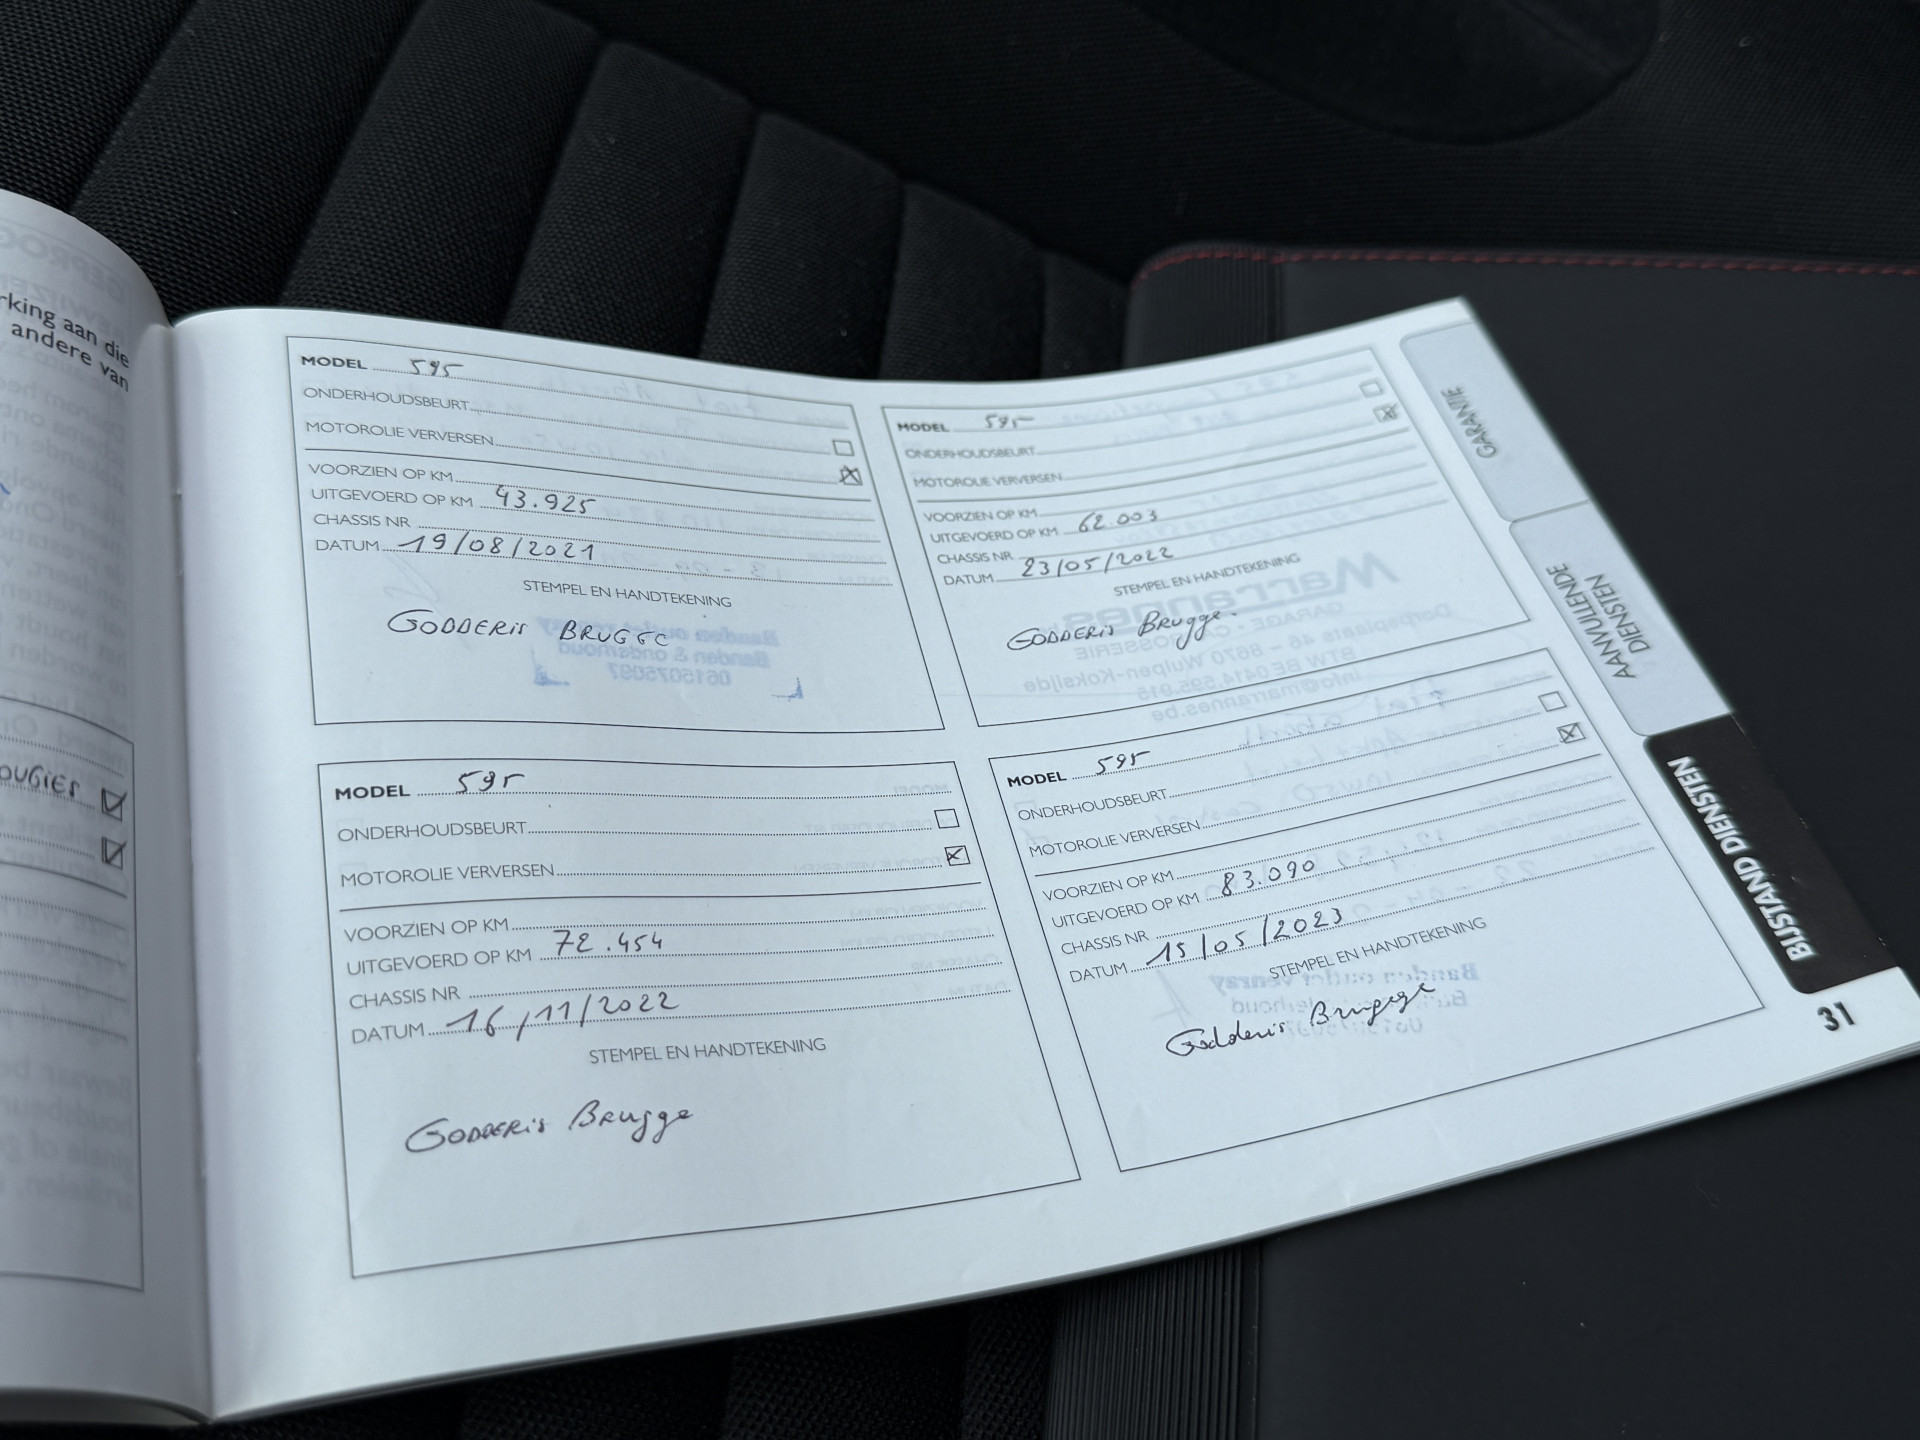 rking aan die
andere van
MODEL 595
ONDERHOUDSBEURT
MOTOROLIE VERVERSEN
VOORZIEN OP KM
UITGEVOERD OP KM 43.925
CHASSIS NR
DATUM 19/08/2021
STEMPEL EN HANDTEKENING
GODDERIS BRUGGE
MODEL 595
ONDERHOUDSBEURT
MOTOROLIE VERVERSEN
VOORZIEN OP KM
UITGEVOERD OP KM 62.003
CHASSIS NR
DATUM 23/05/2022
STEMPEL EN HANDTEKENING
GODDERis Brugge
MODEL 595
ONDERHOUDSBEURT
MOTOROLIE VERVERSEN
VOORZIEN OP KM
UITGEVOERD OP KM 72.454
CHASSIS NR
DATUM 16/11/2022
STEMPEL EN HANDTEKENING
GODDERis Brugge
MODEL 595
ONDERHOUDSBEURT
MOTOROLIE VERVERSEN
VOORZIEN OP KM
UITGEVOERD OP KM 83.090
CHASSIS NR
DATUM 15/05/2023
STEMPEL EN HANDTEKENING
Godderis Brugge
GARANTIE
AANVULLENDE
DIENSTEN
BIJSTAND DIENSTEN
31